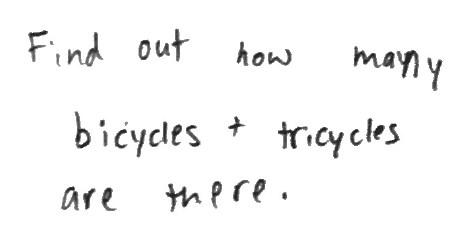 Find out how many
bicycles + tricycles
are there.